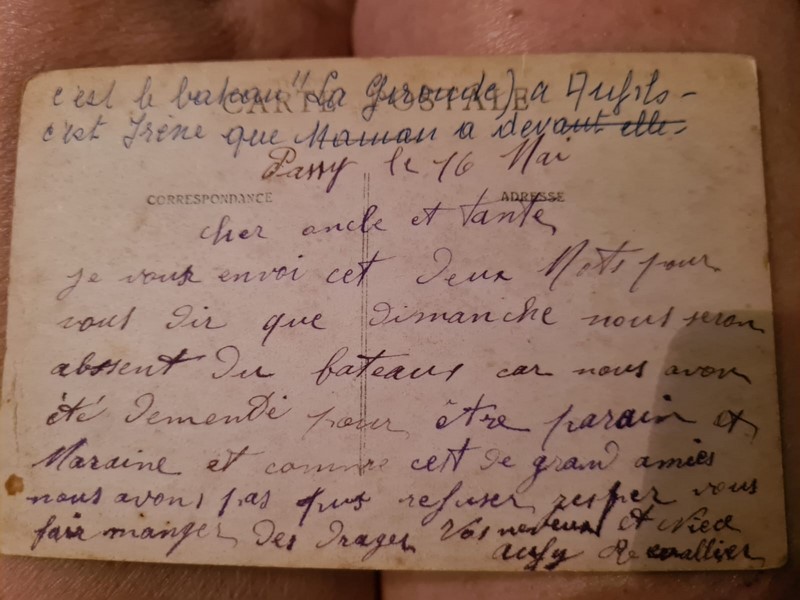 c'est le bateau "La Gironde) a
CARTE POSTALE
c'est Irène que Maman a devant elle.
Passy le 16 Mai
CORRESPONDANCE ADRESSE
cher oncle et tante
je vous envoi cet deux Mots pour
vous dir que dimanche nous seron
absent du bateaus car nous avon
été demendé pour être parain et
Maraine et comme cest de grand amies
nous avons pas pus refuser jesper vous
fair manger des drager Vos neveux et Nièce